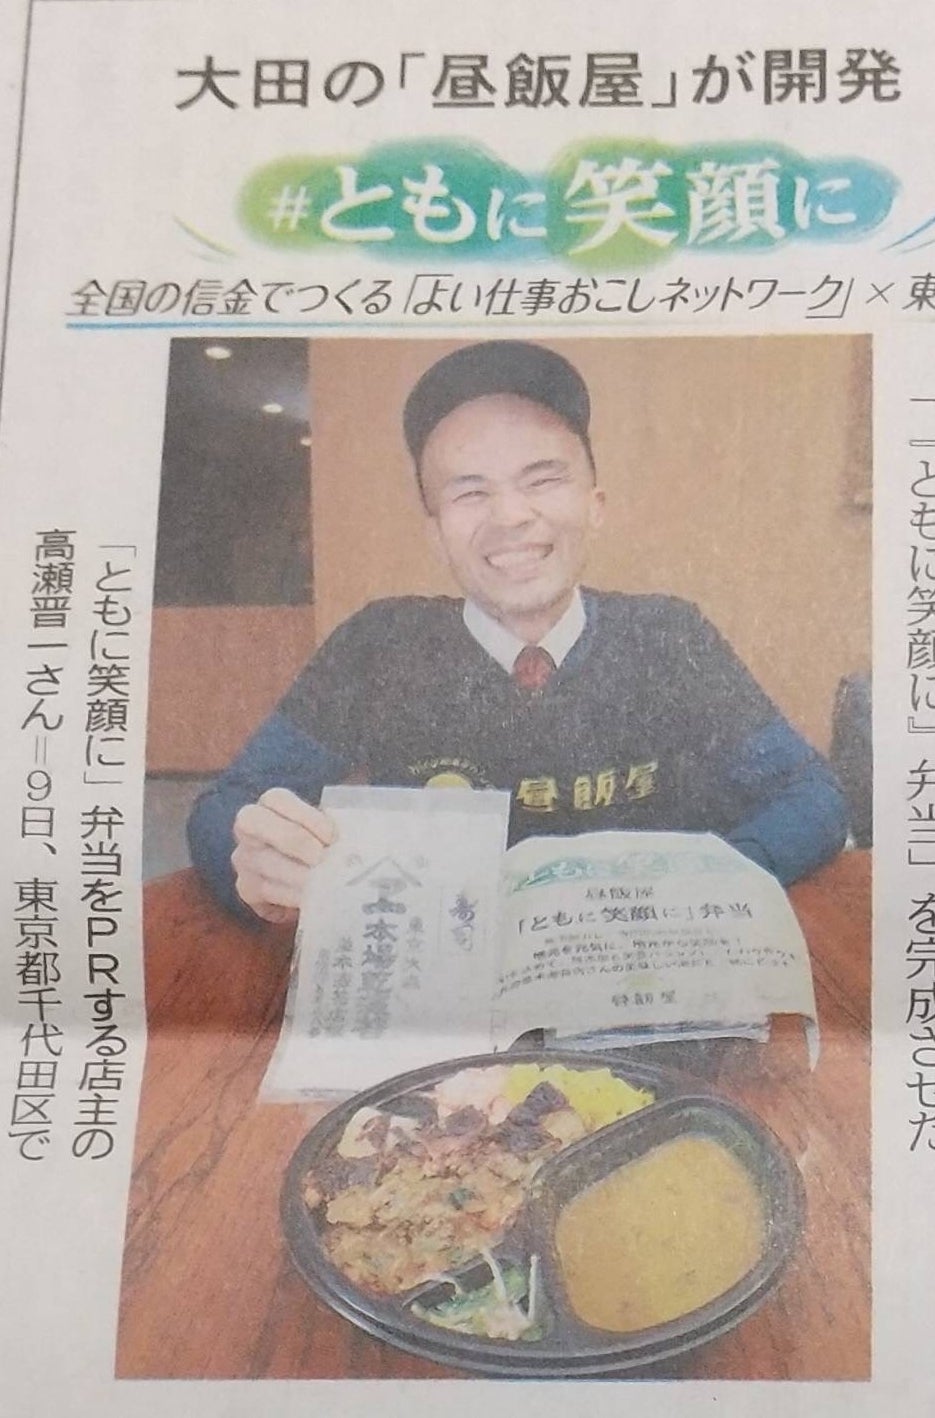 大田の「昼飯屋」が開発
#ともに笑顔に
全国の信金でつくる「よい仕事おこしネットワーク」×東
『ともに笑顔に』弁当」を完成させた
昼飯屋
本場
寿司
ともに笑顔に
昼飯屋
「ともに笑顔に」弁当
昼飯屋
「ともに笑顔に」弁当をPRする店主の
高瀬晋一さん=9日、東京都千代田区で